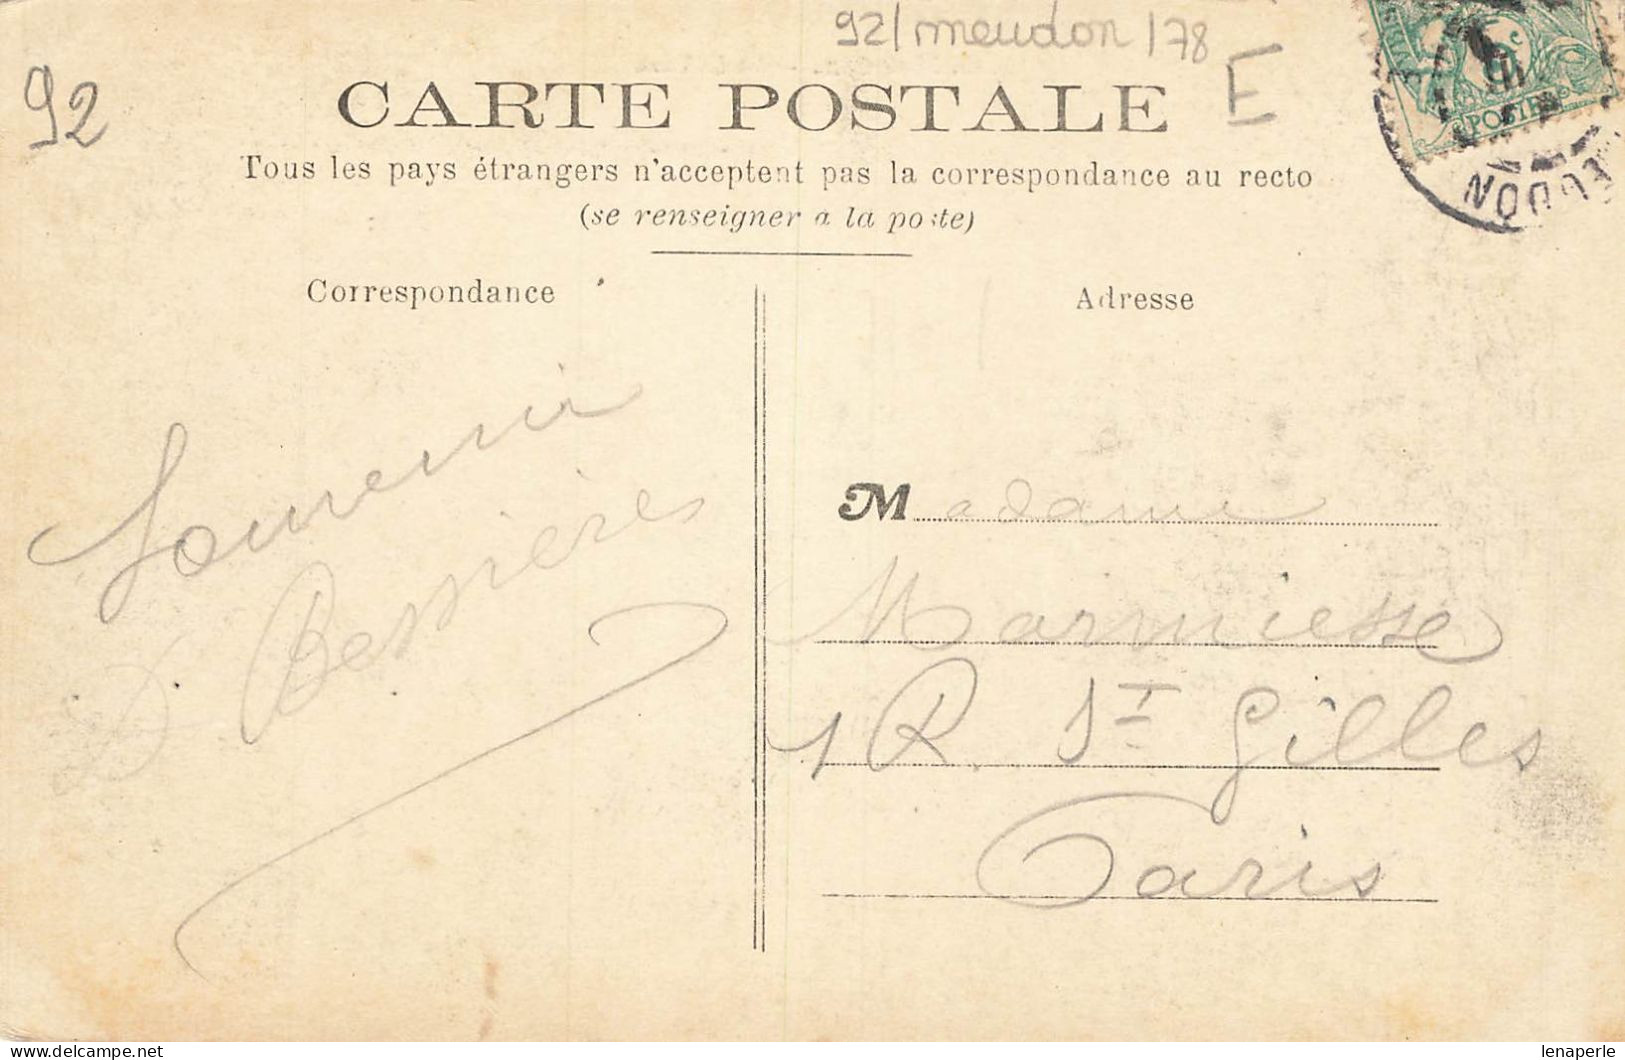 92/meudon/78
E
92
CARTE POSTALE
Tous les pays étrangers n'acceptent pas la correspondance au recto
(se renseigner a la poste)
POSTES
MEUDON
Correspondance
Adresse
Souvenir
Bessières
Madame
Marmiesse
1 R. St Gilles
Paris
lenaperle